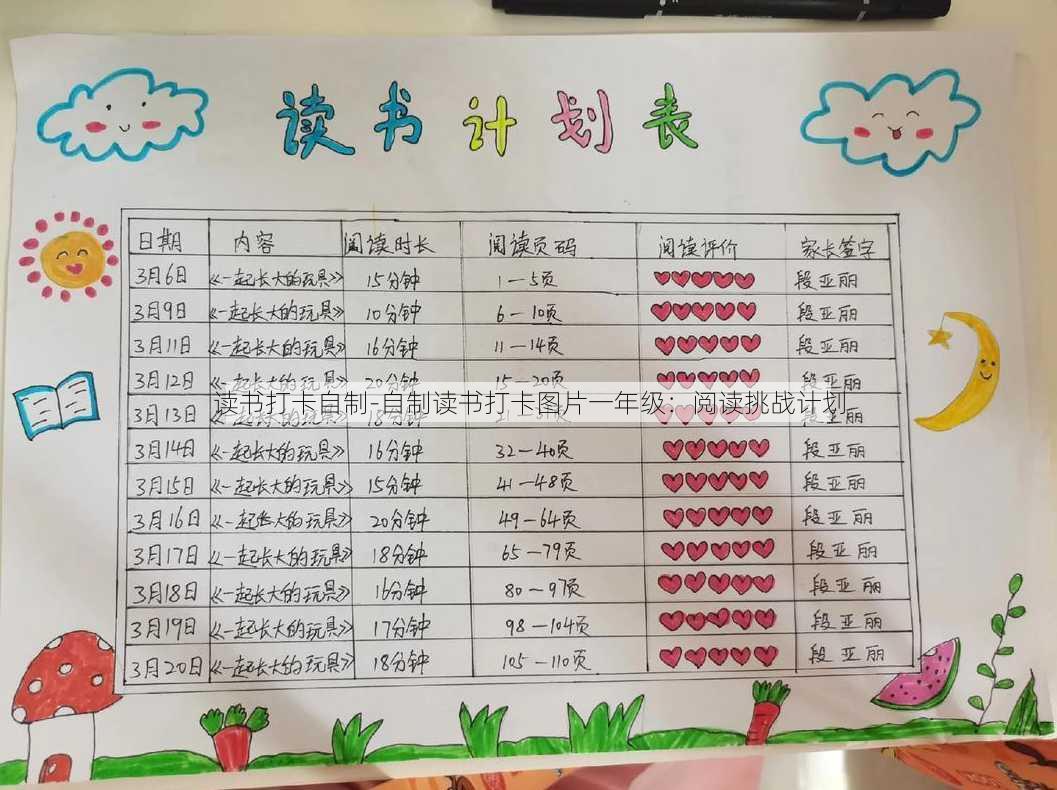 读书计划表
日期 内容 阅读时长 阅读页码 阅读评价 家长签字
3月6日 《一起长大的玩具》 15分钟 1—5页 段亚丽
3月9日 《一起长大的玩具》 10分钟 6—10页 段亚丽
3月11日 《一起长大的玩具》 16分钟 11—14页 段亚丽
3月12日 《一起长大的玩具》 20分钟 15—20页 段亚丽
读书打卡自制-自制读书打卡图片一年级：阅读挑战计划
3月13日 18分钟 段亚丽
3月14日 《一起长大的玩具》 16分钟 32—40页 段亚丽
3月15日 《一起长大的玩具》 15分钟 41—48页 段亚丽
3月16日 《一起长大的玩具》 20分钟 49—64页 段亚丽
3月17日 《一起长大的玩具》 18分钟 65—79页 段亚丽
3月18日 《一起长大的玩具》 16分钟 80—97页 段亚丽
3月19日 《一起长大的玩具》 17分钟 98—104页 段亚丽
3月20日 《一起长大的玩具》 18分钟 105—110页 段亚丽